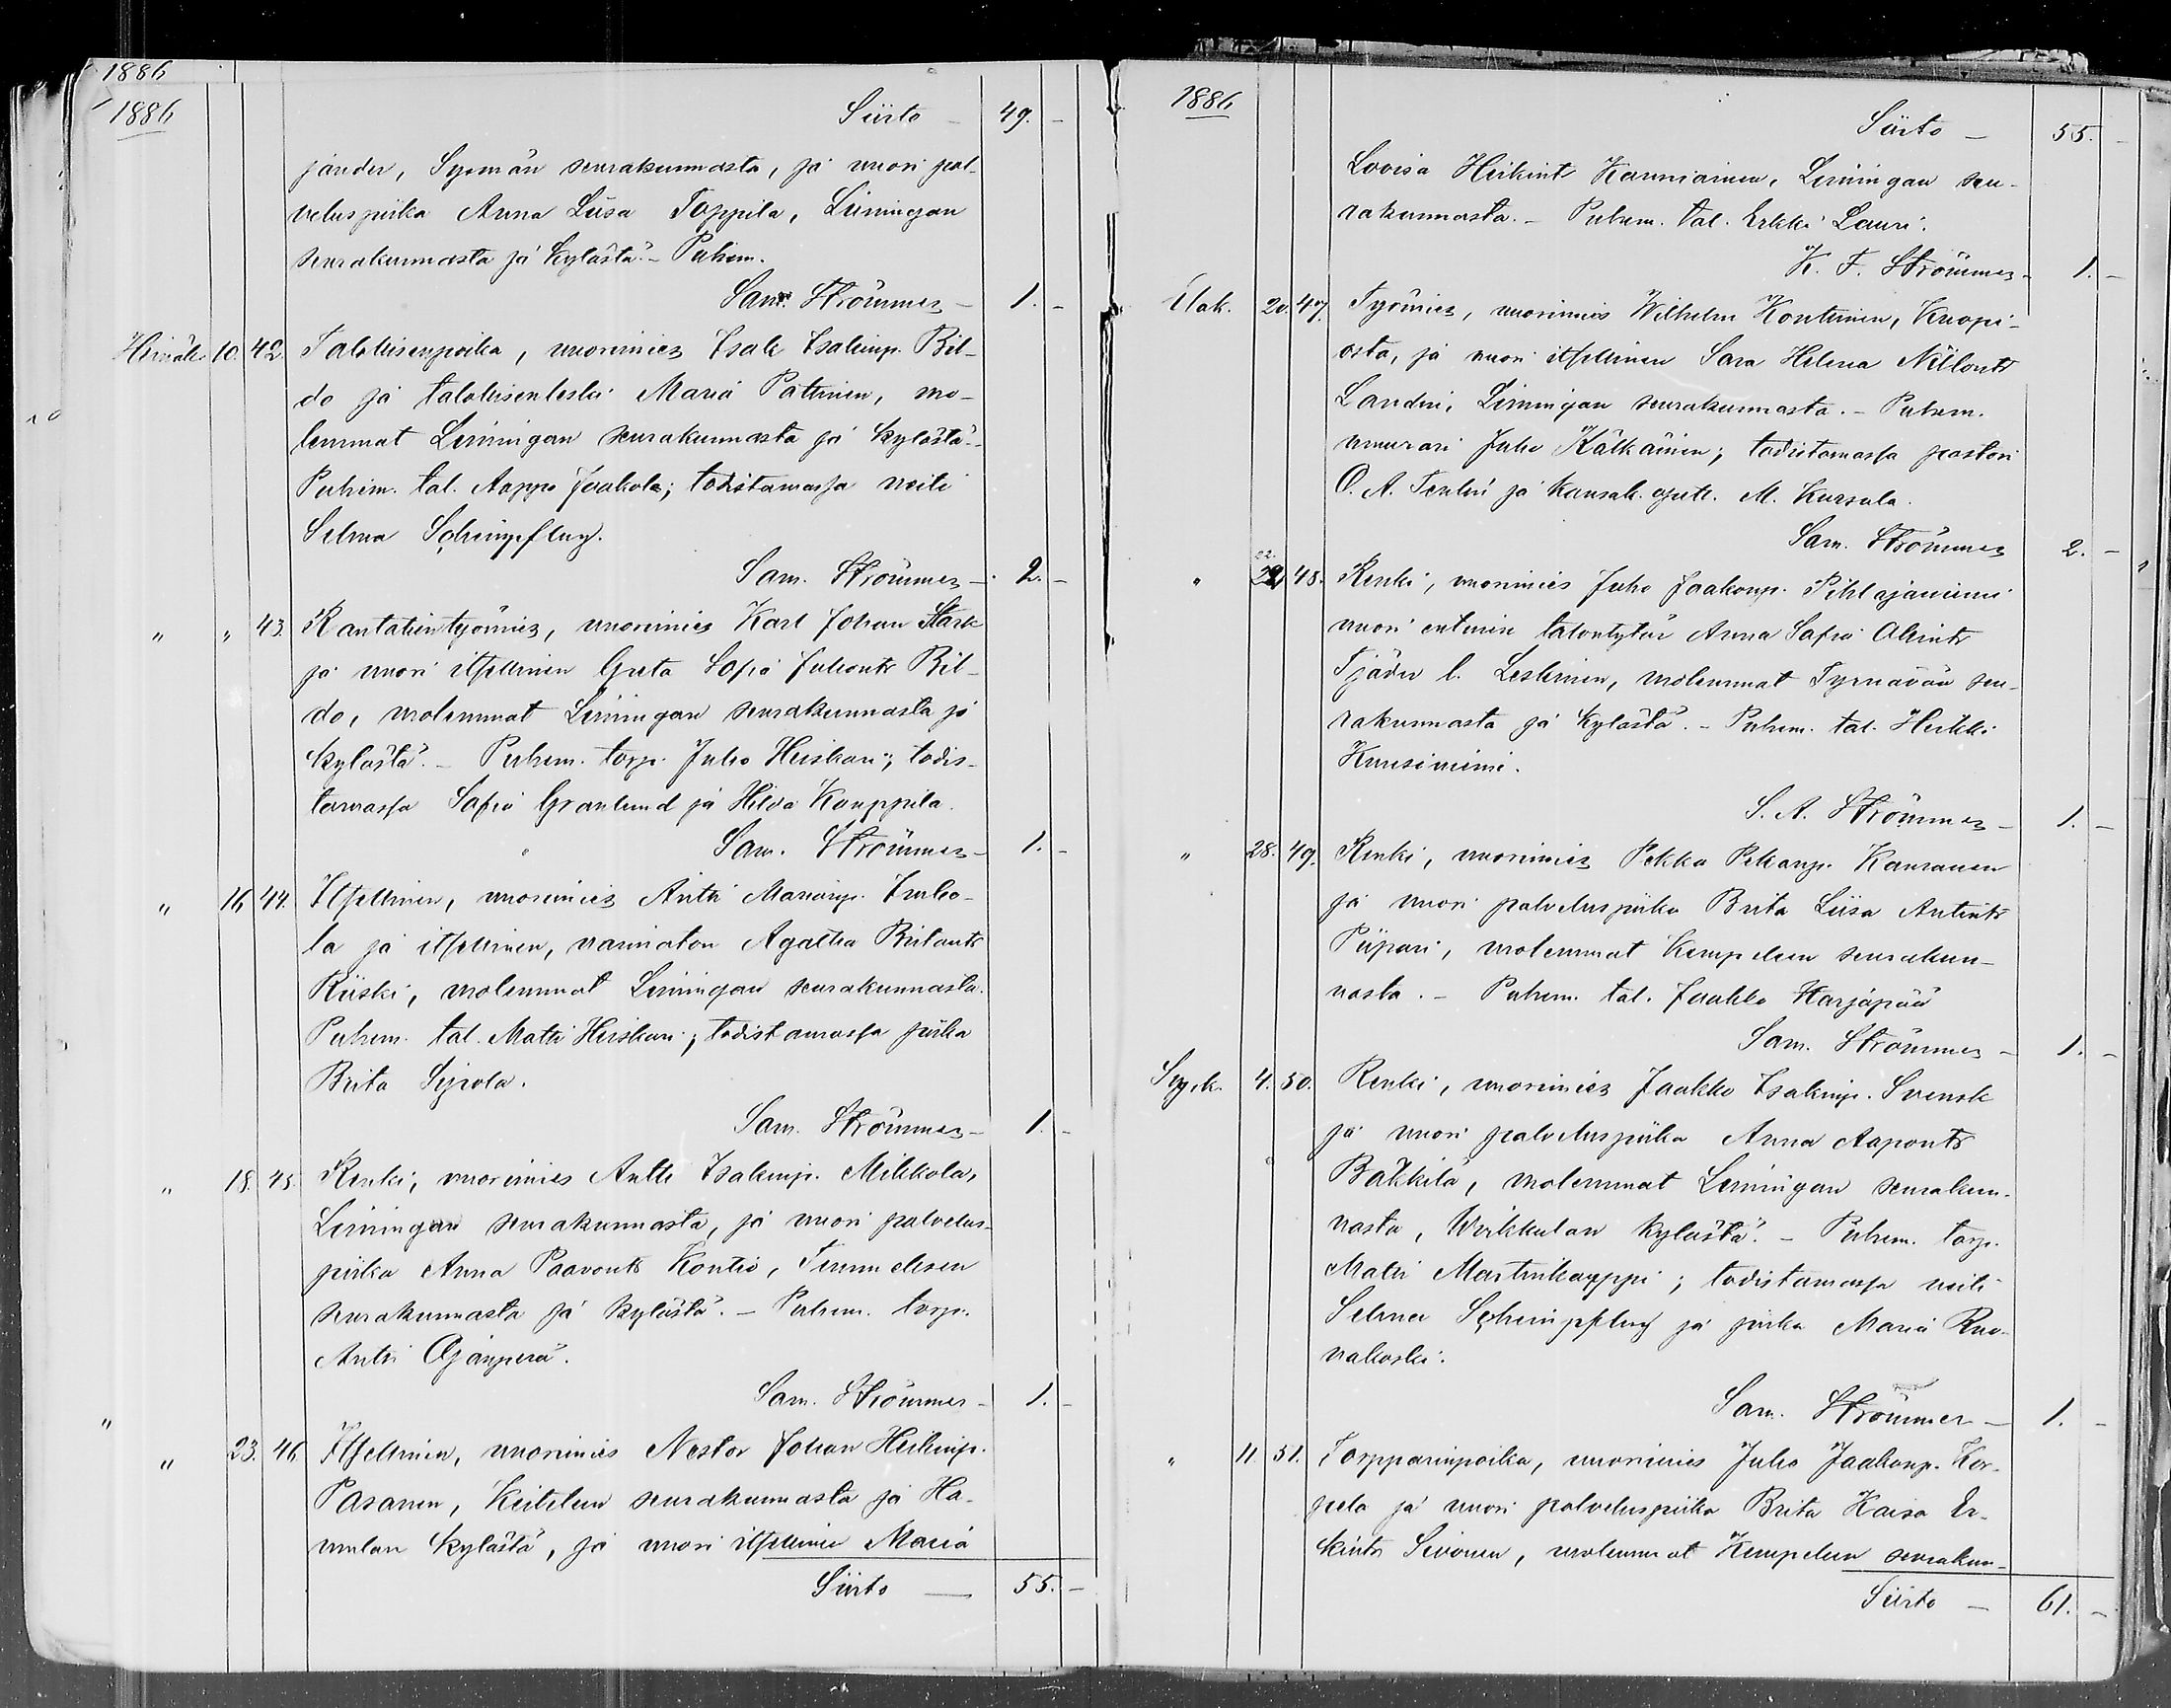 1886
1886
Siirto — 49. —
jander, Sysmän seurakunnasta, ja nuori pal-
veluspiika Anna Liisa Toppila, Limingan
seurakunnasta ja kylästä. - Puhem.
Sam. Strömmer — 1. —
Heinäk. 10. 42. Talollisenpoika, nuorimies Isak Isakinp. Bil-
do ja talollisenleski Maria Pattinen, mo-
lemmat Limingan seurakunnasta ja kylästä. -
Puhem. tal. Aappo Jaakola; todistamassa neiti
Selma Schimpflug.
Sam. Strömmer — 2. —
" " 43. Rautatientyömies, nuorimies Karl Johan Stark
ja nuori itsellinen Greta Sofia Juhontr Bil-
do, molemmat Limingan seurakunnasta ja
kylästä. — Puhem. torp. Juho Heiskari; todis-
tamassa Sofia Granlund ja Hilda Kauppila.
Sam. Strömmer — 1. —
" 16. 44. Itsellinen, nuorimies Antti Marianp. Inho-
la ja itsellinen, naimaton Agatha Britantr
Riiski, molemmat Limingan seurakunnasta.
Puhem. tal. Matti Heiskari; todistamassa piika
Brita Sipola.
Sam. Strömmer — 1. —
" 18. 45. Renki, nuorimies Antti Isakinp. Mikkola,
Limingan seurakunnasta, ja nuori palvelus-
piika Anna Paavontr Kontio, Temmeksen
seurakunnasta ja kylästä. — Puhem. torp.
Antti Ojanperä.
Sam. Strömmer — 1. —
"
" 23. 46. Itsellinen, nuorimies Nestor Johan Heikinp.
Pasanen, Keiteleen seurakunnasta ja Ha-
mulan kylästä, ja nuori itsellinen Maria
Siirto — 55. —
1886
Siirto — 55. —
Lovisa Heikint Kauniainen, Limingan seu-
rakunnasta. — Puhem. tal. Erkki Lauri.
K. F. Strömmer — 1. —
Elok. 20. 47. Työmies, nuorimies Wilhelm Kontinen, Kuopi-
osta, ja nuori itsellinen Sara Helena Niilontr
Landin, Limingan seurakunnasta. — Puhem.
muurari Juho Kälkäinen; todistamassa pastori
O. A. Tenlin ja kansak. opett. M. Kursula.
Sam. Strömmer 2. —
" 22. 48. Renki, nuorimies Juho Jaakonp. Pihlajaniemi
nuori entinen talontytär Anna Sofia Abrintr
Tjäder l. Leskinen, molemmat Tyrnävän seu-
rakunnasta ja kylästä. — Puhem. tal. Heikki
Kuusiniemi.
S. A. Strömmer — 1. —
" 28. 49. Renki, nuorimies Pekka Pekanp. Kauranen
ja nuori palveluspiika Brita Liisa Antintr
Piipari, molemmat Kempeleen seurakun-
nasta. — Puhem. tal. Jaakko Harjapää
Sam. Strömmer — 1. —
Syysk. 4. 50. Renki, nuorimies Jaakko Isakinp. Svensk
ja nuori palveluspiika Anna Aapontr
Bäkkilä, molemmat Limingan seurakun-
nasta, Wirkkulan kylästä. — Puhem. torp.
Matti Martinkauppi; todistamassa neiti
Selma Schimpflug ja piika Maria Ruo-
nakoski.
Sam. Strömmer — 1. —
" 11. 51. Torpparinpoika, nuorimies Juho Jaakonp. Kor-
pela ja nuori palveluspiika Brita Kaisa Er-
kintr Sivonen, molemmat Kempeleen seurakun-
Siirto — 61. —